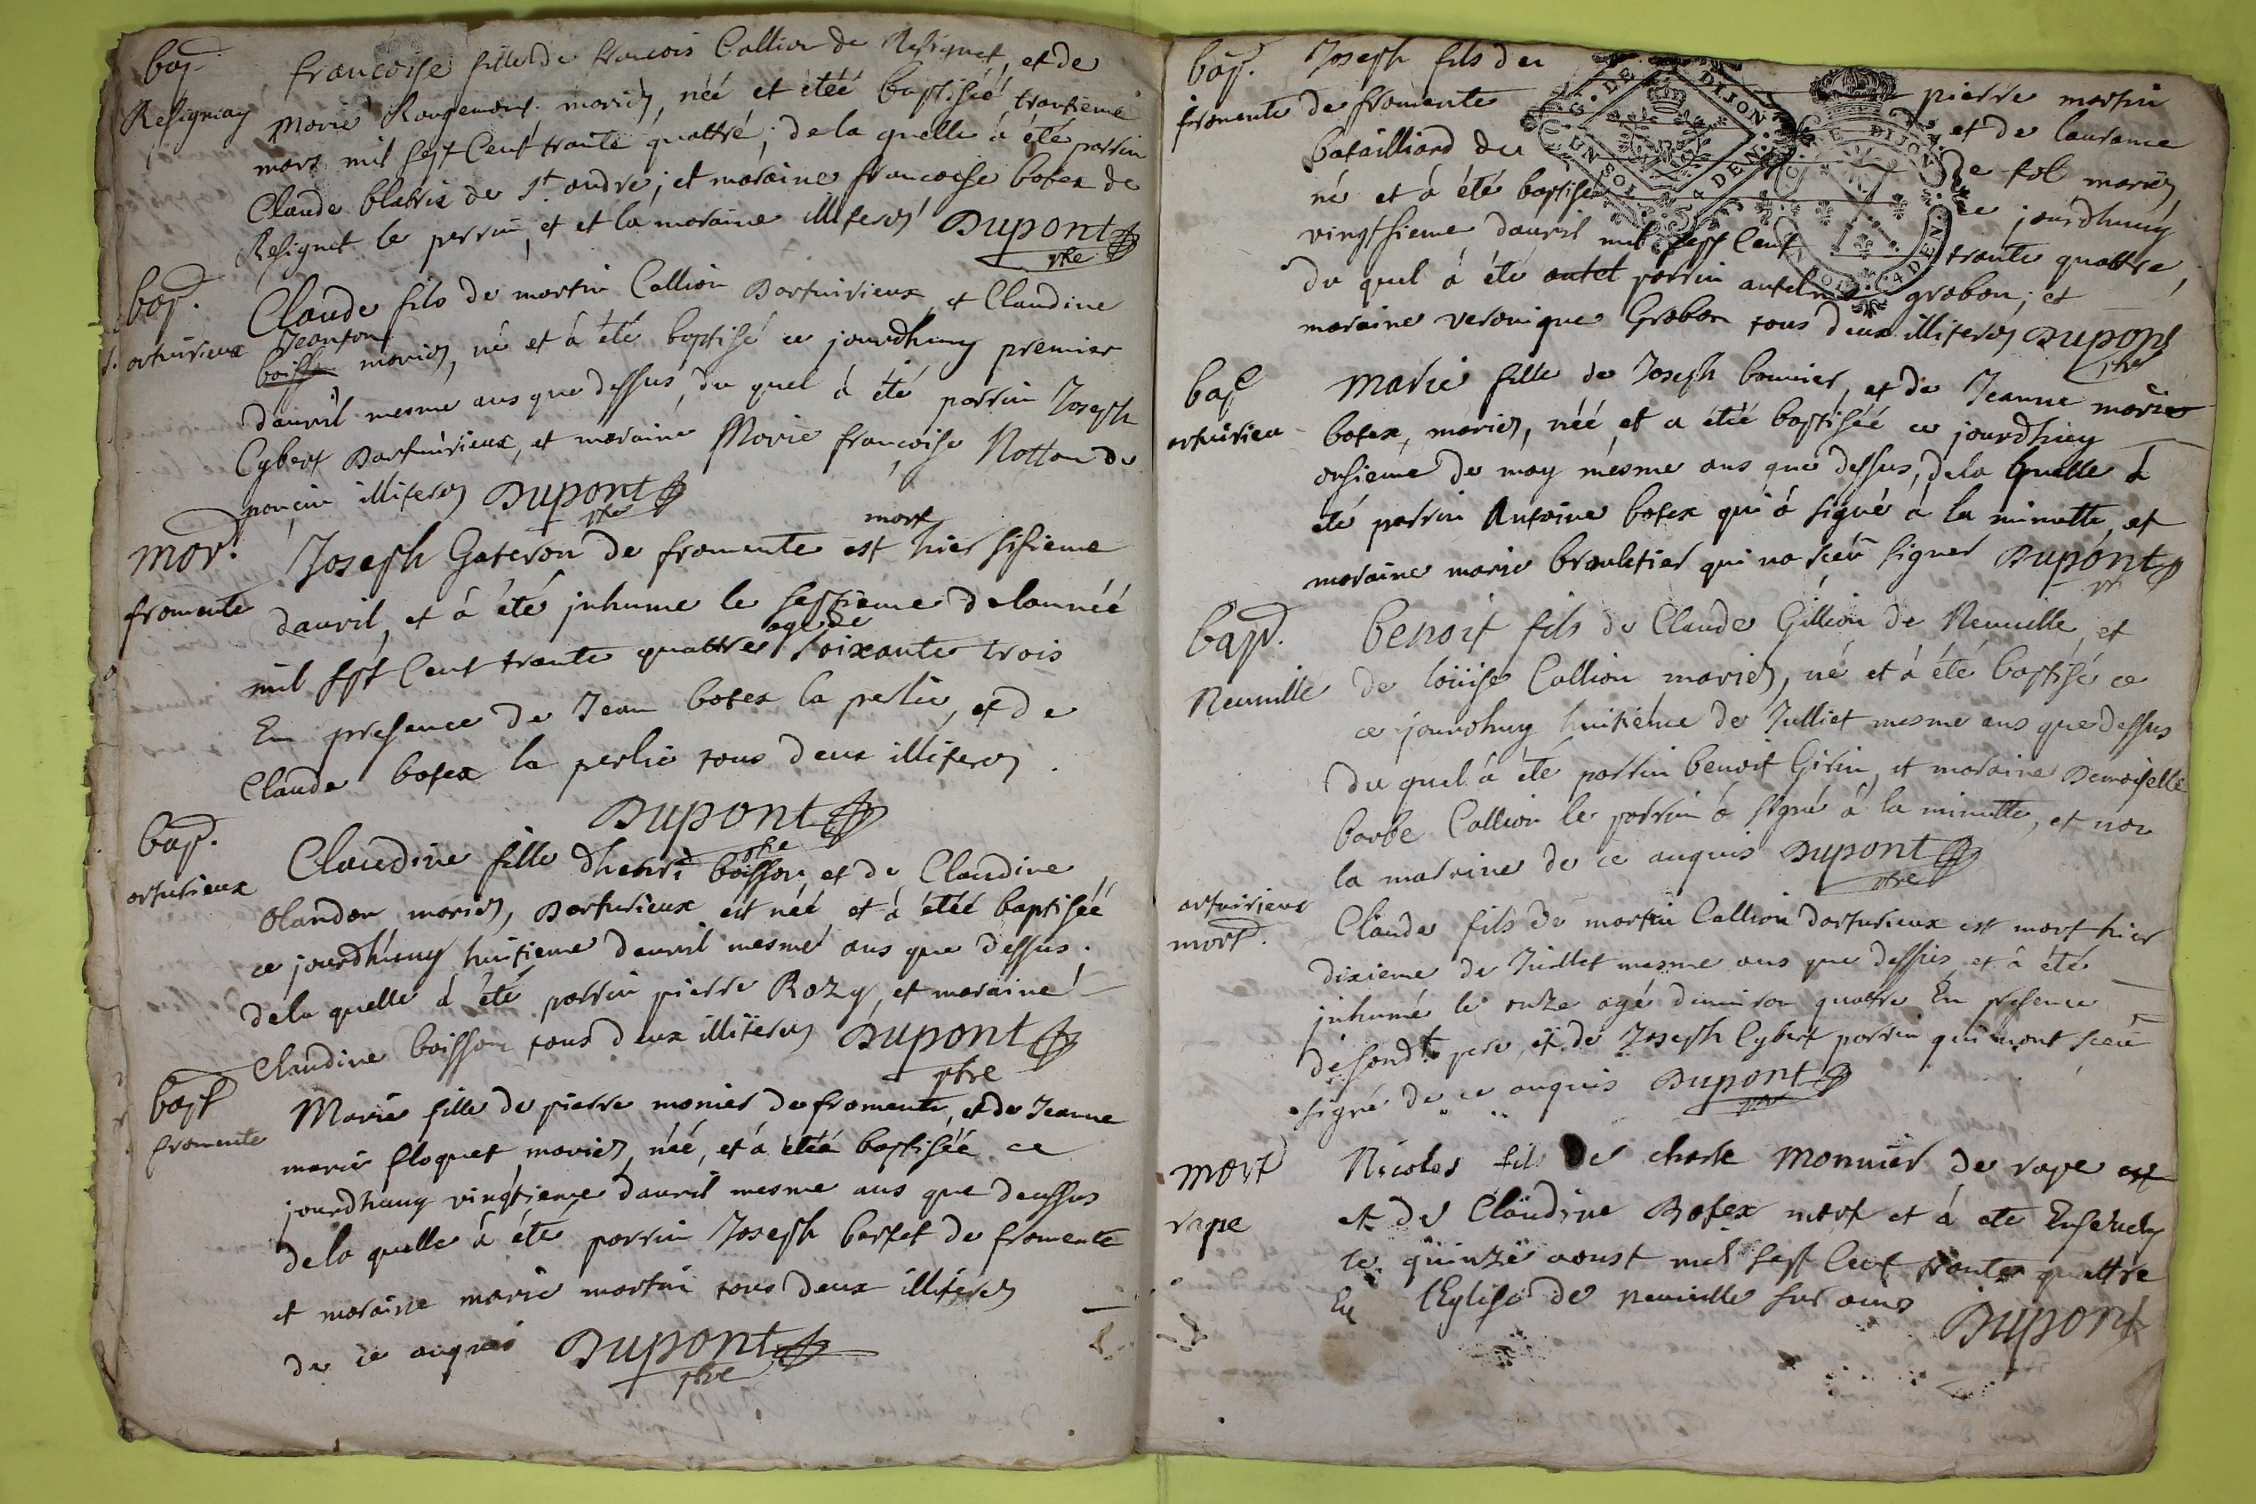 bap.
Resignay
francoise fille de francois Callion de Resignet, et de
Marie Rougemont mariés, née et étéé baptiséé trantieme
mars mil sept Cent trante quattré, de la quelle à été parrin
Claude blatrix de St. andre, et maraine francoise botex de
Resignet le parrin, et et la maraine illiterés Dupont
ptre
bap.
arturieux
Claude fils de martin Callion Darturieux, et Claudine
Jeanton
boisson mariés, né et à été baptisé ce jourdhuy premier
dauril mesme ans que dessus, du quel à été parrin Joseph
Cybert Darturieux, et maraine Marie françoise Notton de
ponçin illiterés Dupont
ptre
mor.
fromente
Joseph Gateron de fromente est mort hier sisieme
dauril, et à été inhume le septieme delannéé
mil sept Cent trante quattre age de soixante trois
En presence de Jean botex la perlie, et de
Claude botex la perlie tous deux illiterés
Dupont
ptre
bap.
arturieux
Claudine fille dhenri boisson, et de Claudine
blandon mariés, Darturieux est néé et à étéé baptiséé
ce jourdhuy huitieme dauril mesme ans que dessus.
dela quelle à été parrin pierre Rozy, et maraine
Claudine boisson tous deux illiterés Dupont
ptre
bapt
fromente
Marie fille de pierre monier de fromente, et de Jeanne
marie floquet mariés, néé, et à étéé baptiséé ce
jourdhuy vingtieme dauril mesme ans que deussus
dela quelle à été parrin Joseph bartet de fromente
et maraine marie martin tous deux illiterés
de ce anquis Dupont
ptre
bap.
fromente
Joseph fils de pierre martin
de fromente et de laurance
batailliard de de fol mariés
né et à été baptisé ce jourdhuy
vingtsieme dauril mil sept Cent trante quattre,
du quel à été autel parrin antelme grobon, et
maraine veronique Grobon tous deux illiterés Dupont
ptre
G. DE DIJON
UN SOL 4 DEN.
G. DE DIJON
UN SOL 4 DEN.
bap
arturieu
Marie fille de Joseph bonnier, et de Jeanne marie
botex, mariés, néé, et a étéé baptiséé ce jourdhuy
onsieme de may mesme ans que dessus, dela quelle à
été parrin Antoine botex qui à signé à la minutte, et
maraine marie brouletier qui na sceu signer Dupont
ptr
bapt.
Neuuille
benoit fils de Claude Gillion de Neuuille, et
de loüise Callion mariés, né et à été baptisé ce
ce jourdhuy huitieme de Julliet mesme ans que dessus
du quel à été parrin benoit Girin, et maraine Demoiselle
barbe Callion le parrin à signé à la minutte, et non
la maraine de ce anquis Dupont
ptre
arturieux
mort.
Claude fils de martin Callion darturieux est mort hier
dixieme de Juillet mesme ans que dessus, et à été
inhumé le onze agé dennviron quattre En presence
desondt. pere, et de Joseph Cybert parrin qui nont sceu
signé de ce anquis Dupont
ptre
mort
rape
Nicolas fils de charle Monnier de rape est
et de Claudine Botex mort et à eté Enseuely
le quinze aoust mil sept Cent trante quattre
En lEglise de neuuille sur ains
Dupont